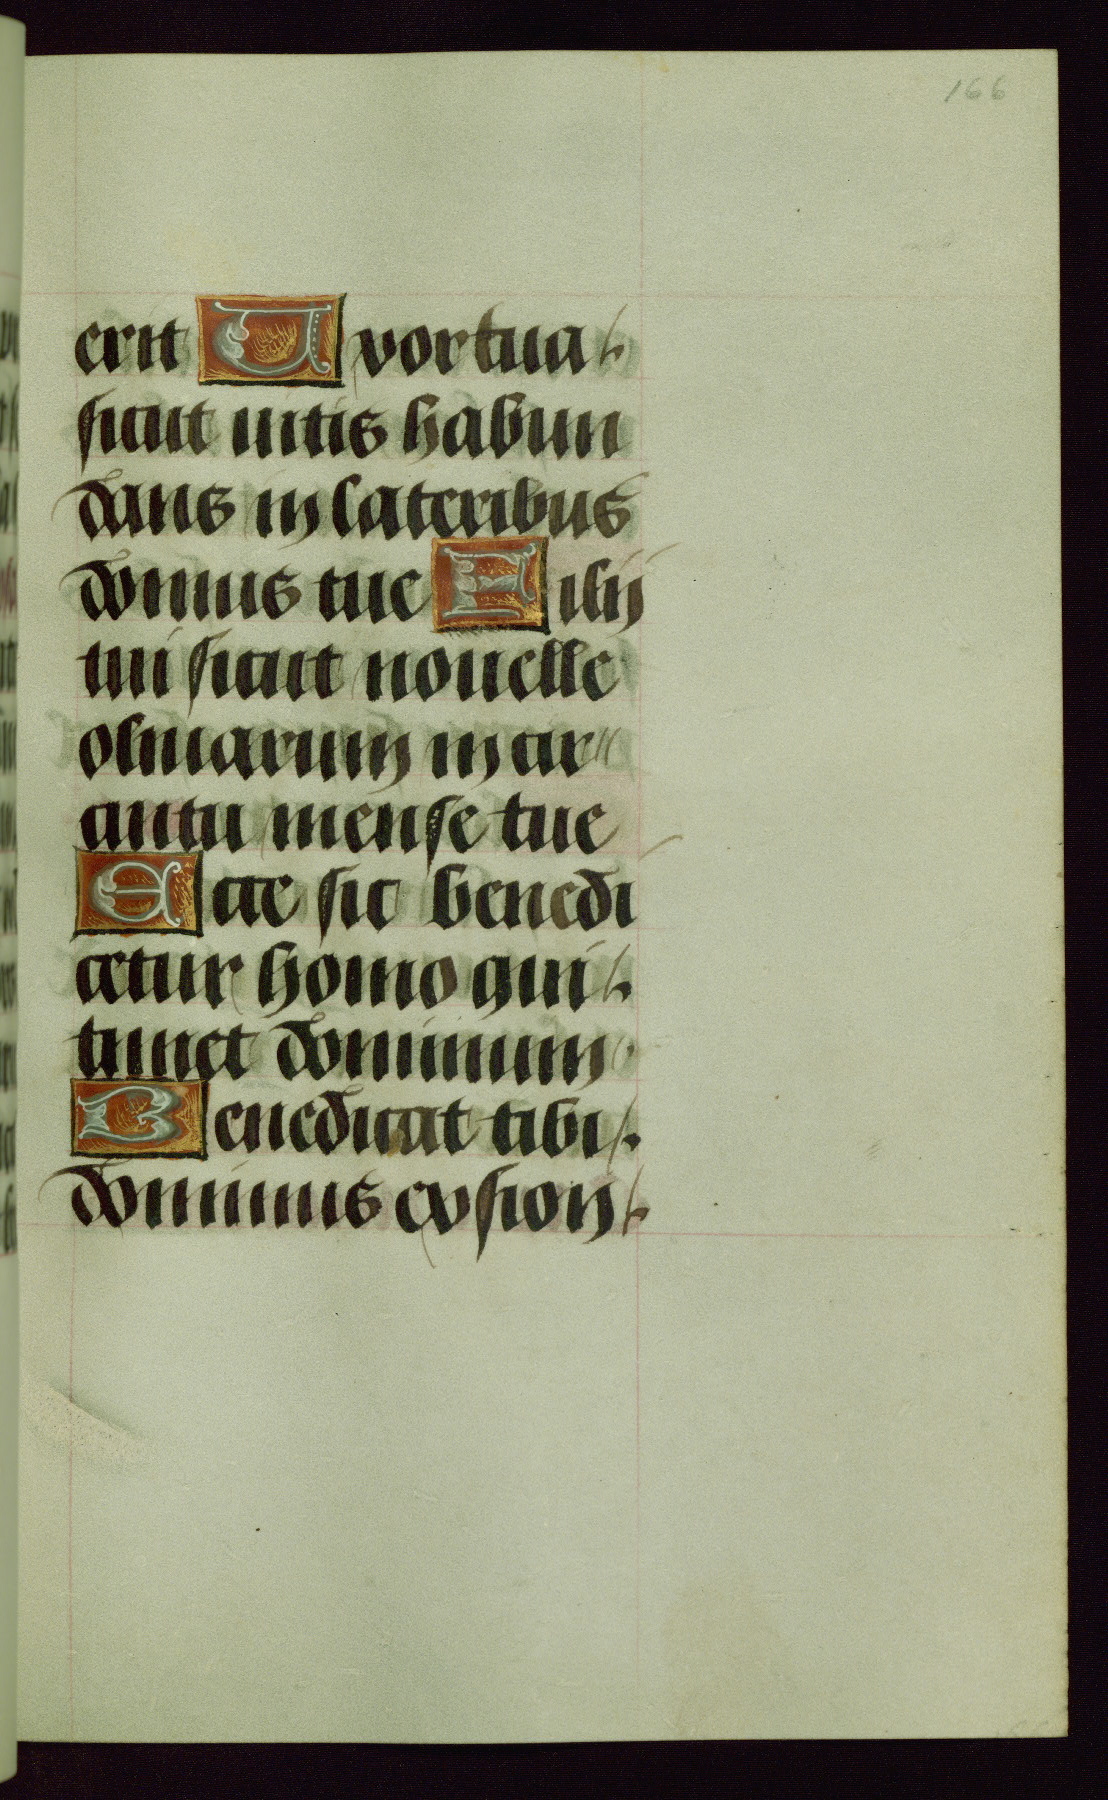 166
erit Uxor tua
sicut uitis habun
dans in lateribus
domus tue Filij
tui sicut nouelle
oliuarum in cir
cuitu mense tue
Ecce sic benedi
cetur homo qui
timet dominum
Benedicat tibi
dominus ex sion